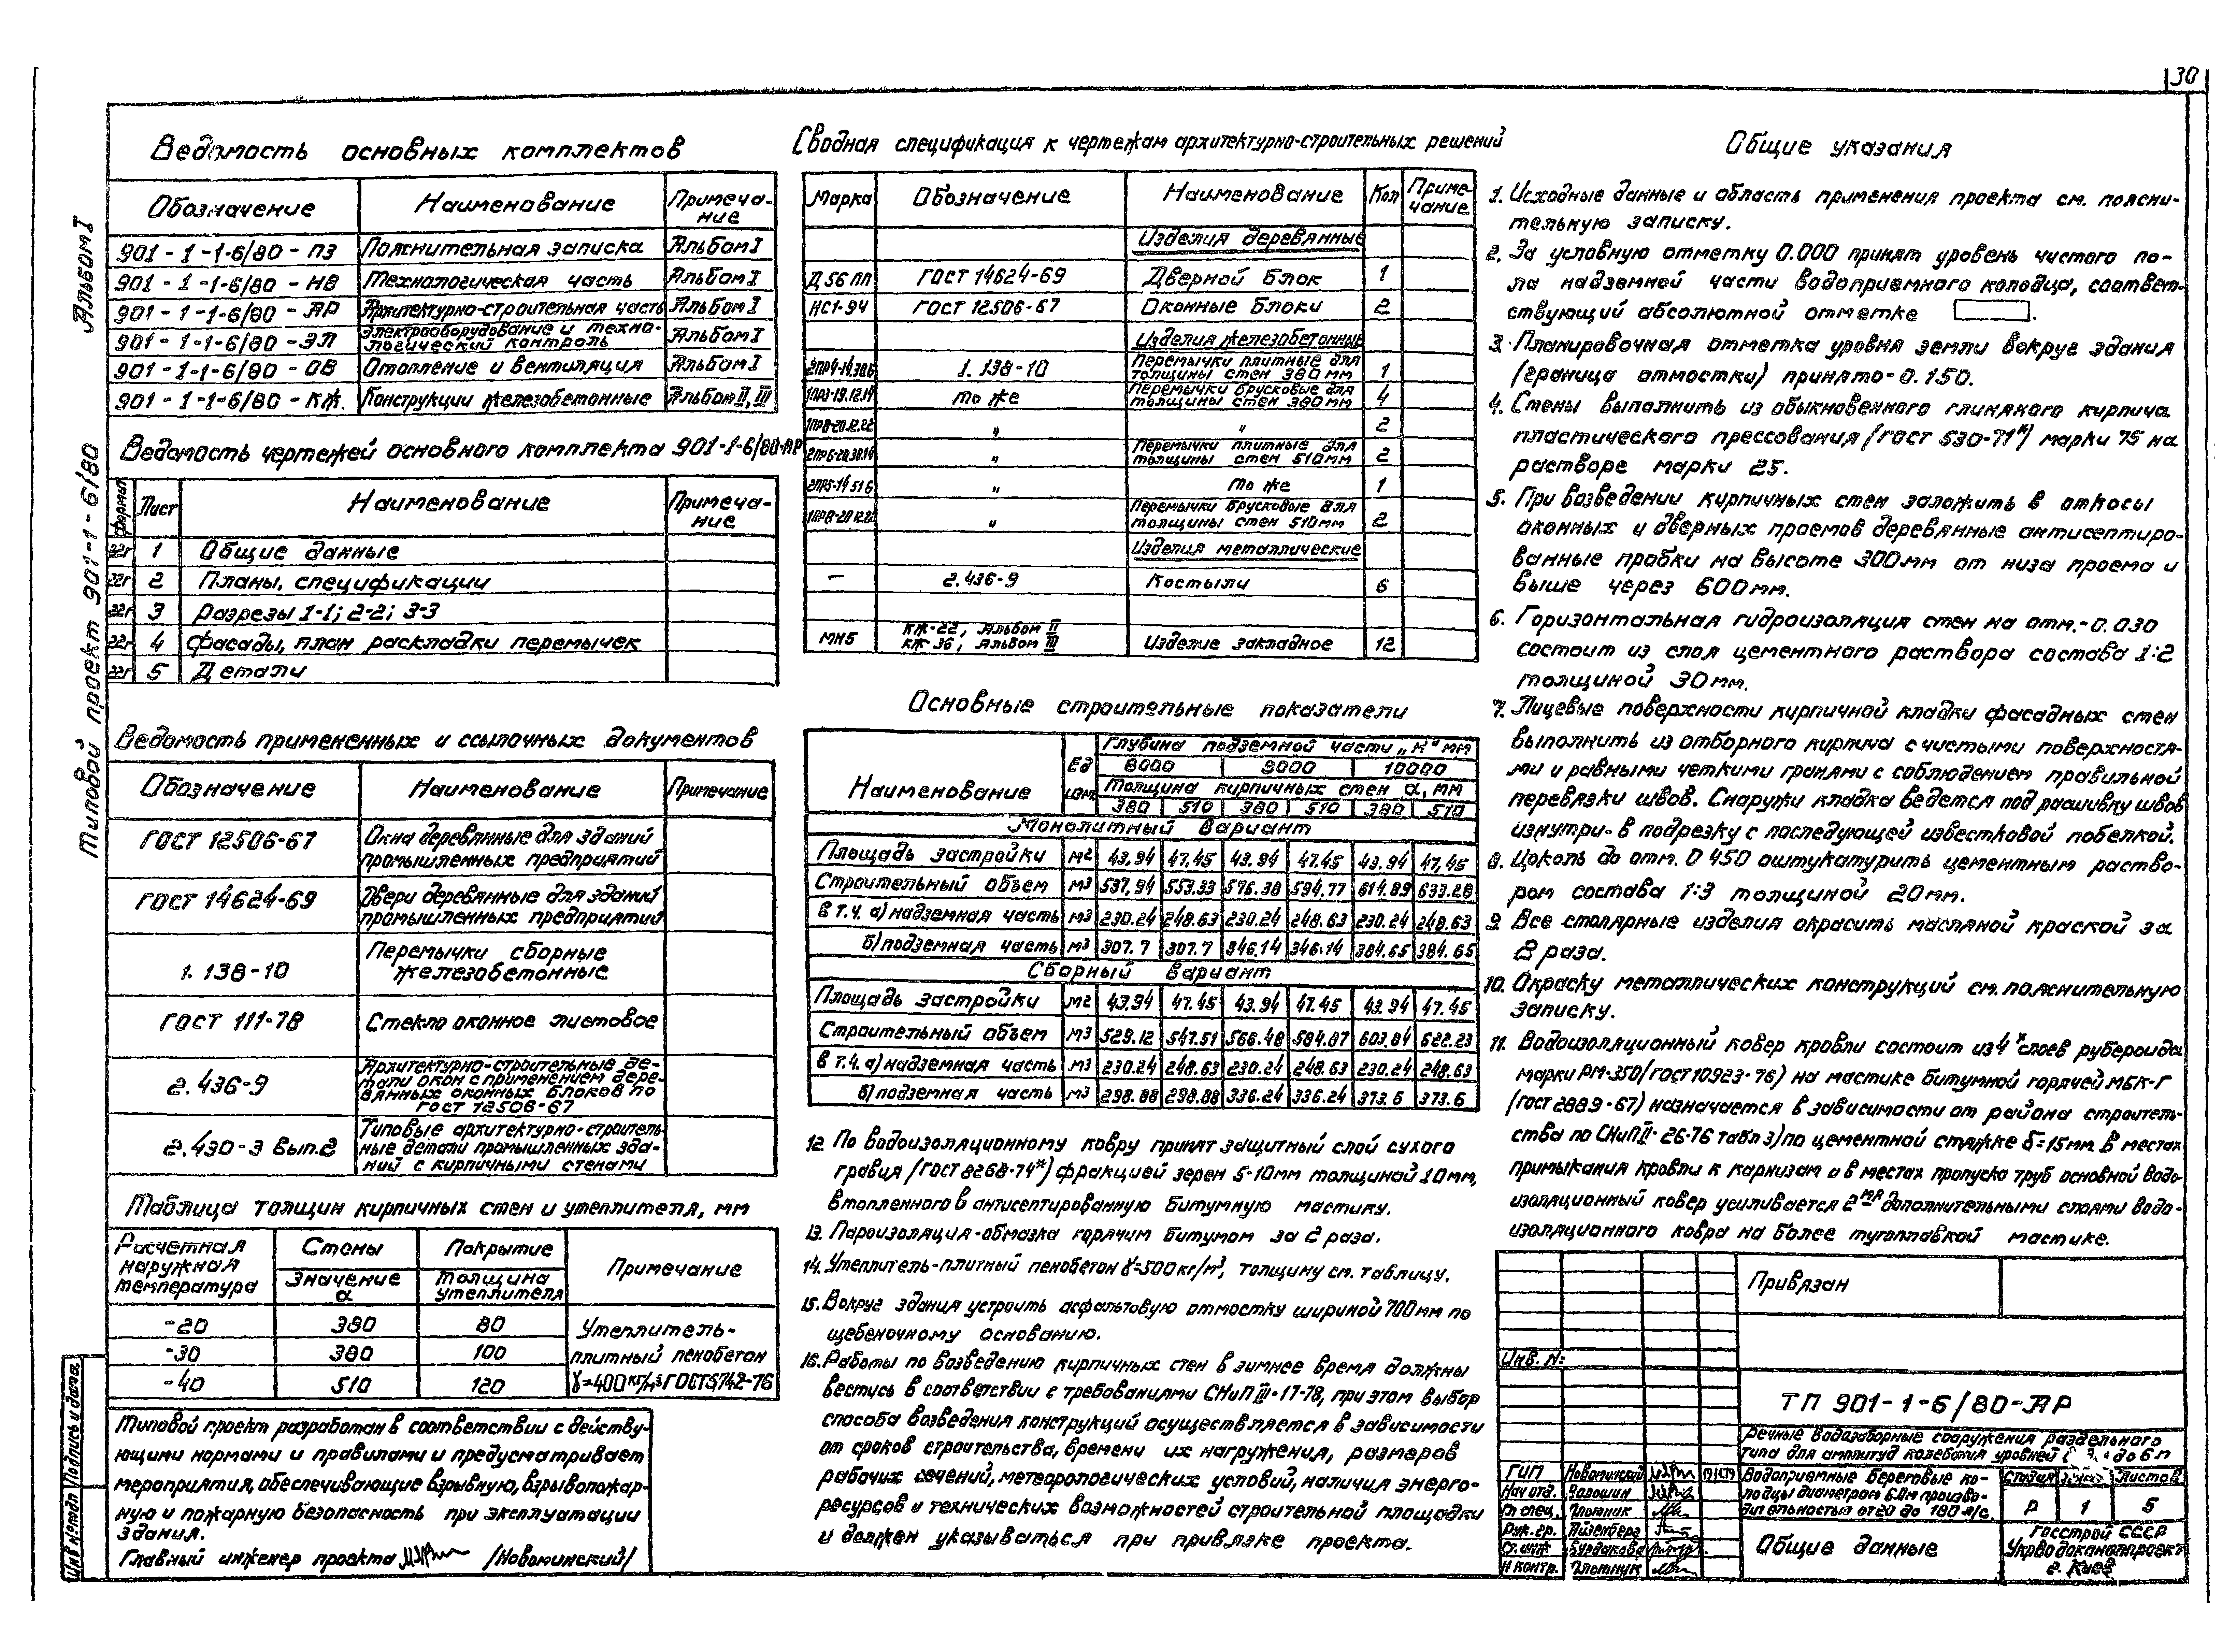 30
Альбом I
Типовой проект 901-1-6/80
Ведомость основных комплектов
Обозначение Наименование Примеча-
ние
901-1-1-6/80-ПЗ Пояснительная записка Альбом I
901-1-1-6/80-НВ Технологическая часть Альбом I
901-1-1-6/80-АР Архитектурно-строительная часть Альбом I
901-1-1-6/80-ЭЛ Электрооборудование и техно-
логический контроль Альбом I
901-1-1-6/80-ОВ Отопление и вентиляция Альбом I
901-1-1-6/80-КЖ. Конструкции железобетонные Альбом II, III
Ведомость чертежей основного комплекта 901-1-6/80-АР
Формат Лист Наименование Примеча-
ние
22г 1 Общие данные
22г 2 Планы, спецификации
22г 3 Разрезы 1-1; 2-2; 3-3
22г 4 Фасады, план раскладки перемычек
22г 5 Детали
Ведомость примененных и ссылочных документов
Обозначение Наименование Примечание
ГОСТ 12506-67 Окна деревянные для зданий
промышленных предприятий
ГОСТ 14624-69 Двери деревянные для зданий
промышленных предприятий
1.138-10 Перемычки сборные
железобетонные
ГОСТ 111-78 Стекло оконное листовое
2.436-9 Архитектурно-строительные де-
тали окон с применением дере-
вянных оконных блоков по
ГОСТ 12506-67
2.430-3 вып.2 Типовые архитектурно-строитель-
ные детали промышленных зда-
ний с кирпичными стенами
Таблица толщин кирпичных стен и утеплителя, мм
Расчетная
наружная
температура Стены Покрытие Примечание
Значение
α Толщина
утеплителя
-20 380 80 Утеплитель-
-30 380 100 плитный пенобетон
-40 510 120 γ=400кг/м³ ГОСТ 5742-76
Типовой проект разработан в соответствии с действу-
ющими нормами и правилами и предусматривает
мероприятия, обеспечивающие взрывную, взрывопожар-
ную и пожарную безопасность при эксплуатации
здания.
Главный инженер проекта /Новоминский/
Инв № подл Подпись и дата
Сводная спецификация к чертежам архитектурно-строительных решений
Марка Обозначение Наименование Кол Приме-
чание
Изделия деревянные
Д 56 ПП ГОСТ 14624-69 Дверной блок 1
НС1-94 ГОСТ 12506-67 Оконные блоки 2
Изделия железобетонные
2ПР4-14.38.6 1.138-10 Перемычки плитные для
толщины стен 380мм 1
1ПР3-19.12.14 то же Перемычки брусковые для
толщины стен 380мм 4
1ПР8-20.12.22 " " 2
2ПР6-28.38.14 " Перемычки плитные для
толщины стен 510мм 2
2ПР5-14 51 6 " то же 1
1ПР8-20.12.22 " Перемычки брусковые для
толщины стен 510мм 2
Изделия металлические
— 2.436-9 Костыли 6
МН5 КЖ-22, Альбом II
КЖ-36, Альбом III Изделие закладное 12
Основные строительные показатели
Наименование Ед
изм Глубина подземной части „Н" мм
8000 9000 10000
Толщина кирпичных стен α, мм
380 510 380 510 380 510
Монолитный вариант
Площадь застройки м2 43.94 47.45 43.94 47.45 43.94 47.45
Строительный объем м3 537,94 553.33 576.38 594,77 614.89 633.28
в т.ч. а) надземная часть м3 230.24 248.63 230.24 248.63 230.24 248.63
б) подземная часть м3 307.7 307.7 346.14 346.14 384.65 384.65
Сборный вариант
Площадь застройки м2 43.94 47.45 43.94 47.45 43.94 47.45
Строительный объем м3 529.12 547.51 566.48 584.87 603.84 622.23
в т.ч. а) надземная часть м3 230.24 248.63 230.24 248.63 230.24 248.63
б) подземная часть м3 298.88 298.88 336.24 336.24 373.6 373.6
12. По водоизоляционному ковру принят защитный слой сухого
гравия (ГОСТ 8268-74*) фракцией зерен 5-10мм толщиной 10мм,
втопленного в антисептированную битумную мастику.
13. Пароизоляция-обмазка горячим битумом за 2 раза.
14. Утеплитель-плитный пенобетон γ=500кг/м³, толщину см. таблицу.
15. Вокруг здания устроить асфальтовую отмостку шириной 700мм по
щебеночному основанию.
16. Работы по возведению кирпичных стен в зимнее время должны
вестись в соответствии с требованиями СНиП III-17-78, при этом выбор
способа возведения конструкций осуществляется в зависимости
от сроков строительства, времени их нагружения, размеров
рабочих сечений, метеорологических условий, наличия энерго-
ресурсов и технических возможностей строительной площадки
и должен указываться при привязке проекта.
Общие указания
1. Исходные данные и область применения проекта см. поясни-
тельную записку.
2. За условную отметку 0.000 принят уровень чистого по-
ла надземной части водоприемного колодца, соответ-
ствующий абсолютной отметке .
3. Планировочная отметка уровня земли вокруг здания
(граница отмостки) принято-0.150.
4. Стены выполнить из обыкновенного глиняного кирпича
пластического прессования (ГОСТ 530-71*) марки 75 на
растворе марки 25.
5. При возведении кирпичных стен заложить в откосы
оконных и дверных проемов деревянные антисептиро-
ванные пробки на высоте 300мм от низа проема и
выше через 600мм.
6. Горизонтальная гидроизоляция стен на отм.-0.030
состоит из слоя цементного раствора состава 1:2
толщиной 30мм.
7. Лицевые поверхности кирпичной кладки фасадных стен
выполнить из отборного кирпича с чистыми поверхностя-
ми и равными четкими гранями с соблюдением правильной
перевязки швов. Снаружи кладка ведется под расшивку швов
изнутри-в подрезку с последующей известковой побелкой.
8. Цоколь до отм. 0 450 оштукатурить цементным раство-
ром состава 1:3 толщиной 20мм.
9. Все столярные изделия окрасить масляной краской за
2 раза.
10. Окраску металлических конструкций см. пояснительную
записку.
11. Водоизоляционный ковер кровли состоит из 4х слоев рубероида
марки РМ-350 (ГОСТ 10923-76) на мастике битумной горячей МБК-Г
(ГОСТ 2889-67) назначается в зависимости от района строитель-
ства по СНиП II-26-76 табл 3) по цементной стяжке δ=15мм. В местах
примыкания кровли к карнизам и в местах пропуска труб основной водо-
изоляционный ковер усиливается 2мя дополнительными слоями водо-
изоляционного ковра на более тугоплавкой мастике.
Привязан
Инв. №:
ТП 901-1-6/80-АР
Речные водозаборные сооружения раздельного
типа для амплитуд колебания уровней до 6 м
ГИП Новоминский
Нач отд.
Гл спец. Плотник
Рук. гр. Айзенберг
Ст. инж Бурдакова
Н контр. Плотник
Водоприемные береговые ко-
лодцы диаметром 6.0м произво-
дительностью от 20 до 180 л/с.
Стадия Листов
Р 1 5
Общие данные
Госстрой СССР
Укрводоканалпроект
г. Киев